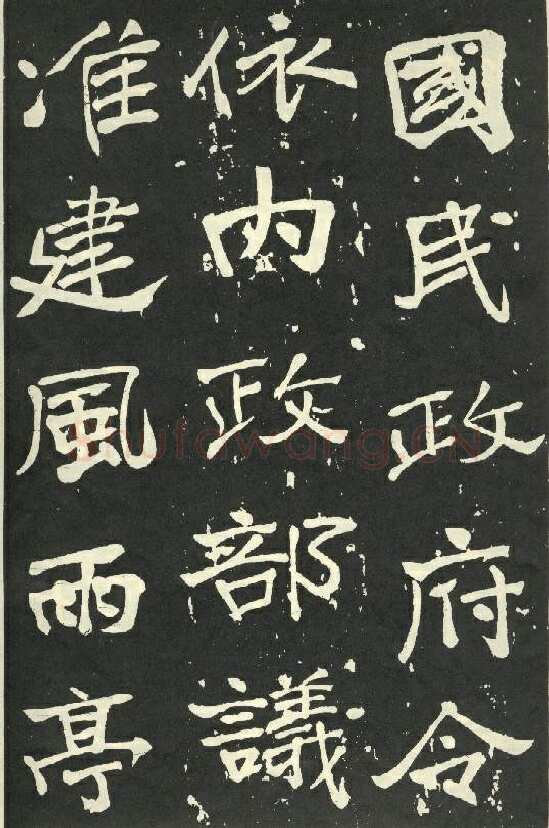 國民政府令
依内政部議
准建風雨亭
shufawang.cn